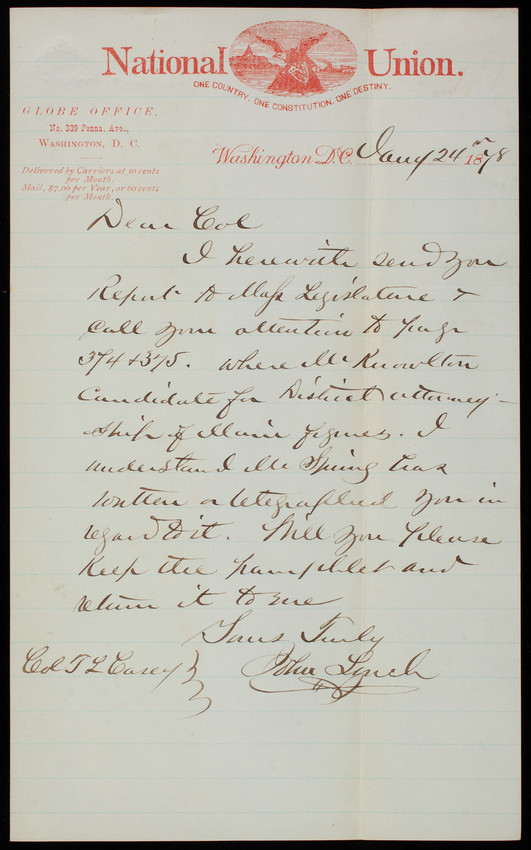 National Union.
ONE COUNTRY, ONE CONSTITUTION, ONE DESTINY.
GLOBE OFFICE,
No. 339 Penna. Ave.,
WASHINGTON, D. C.
Delivered by Carriers at 50 cents
per Month.
Mail, $7.00 per Year, or 60 cents
per Month.
Washington D.C. Jany 24 1878
Dear Col
I herewith send you
Report to Mass Legislature &
call your attention to page
374 & 375. where Mr Knowlton
Candidate for District attorney-
ship of Maine figures. I
understand Mr Spring has
written or telegraphed you in
regard to it. Will you please
Keep the pamphlet and
return it to me
Yours Truly
Col T L Casey John Lynch